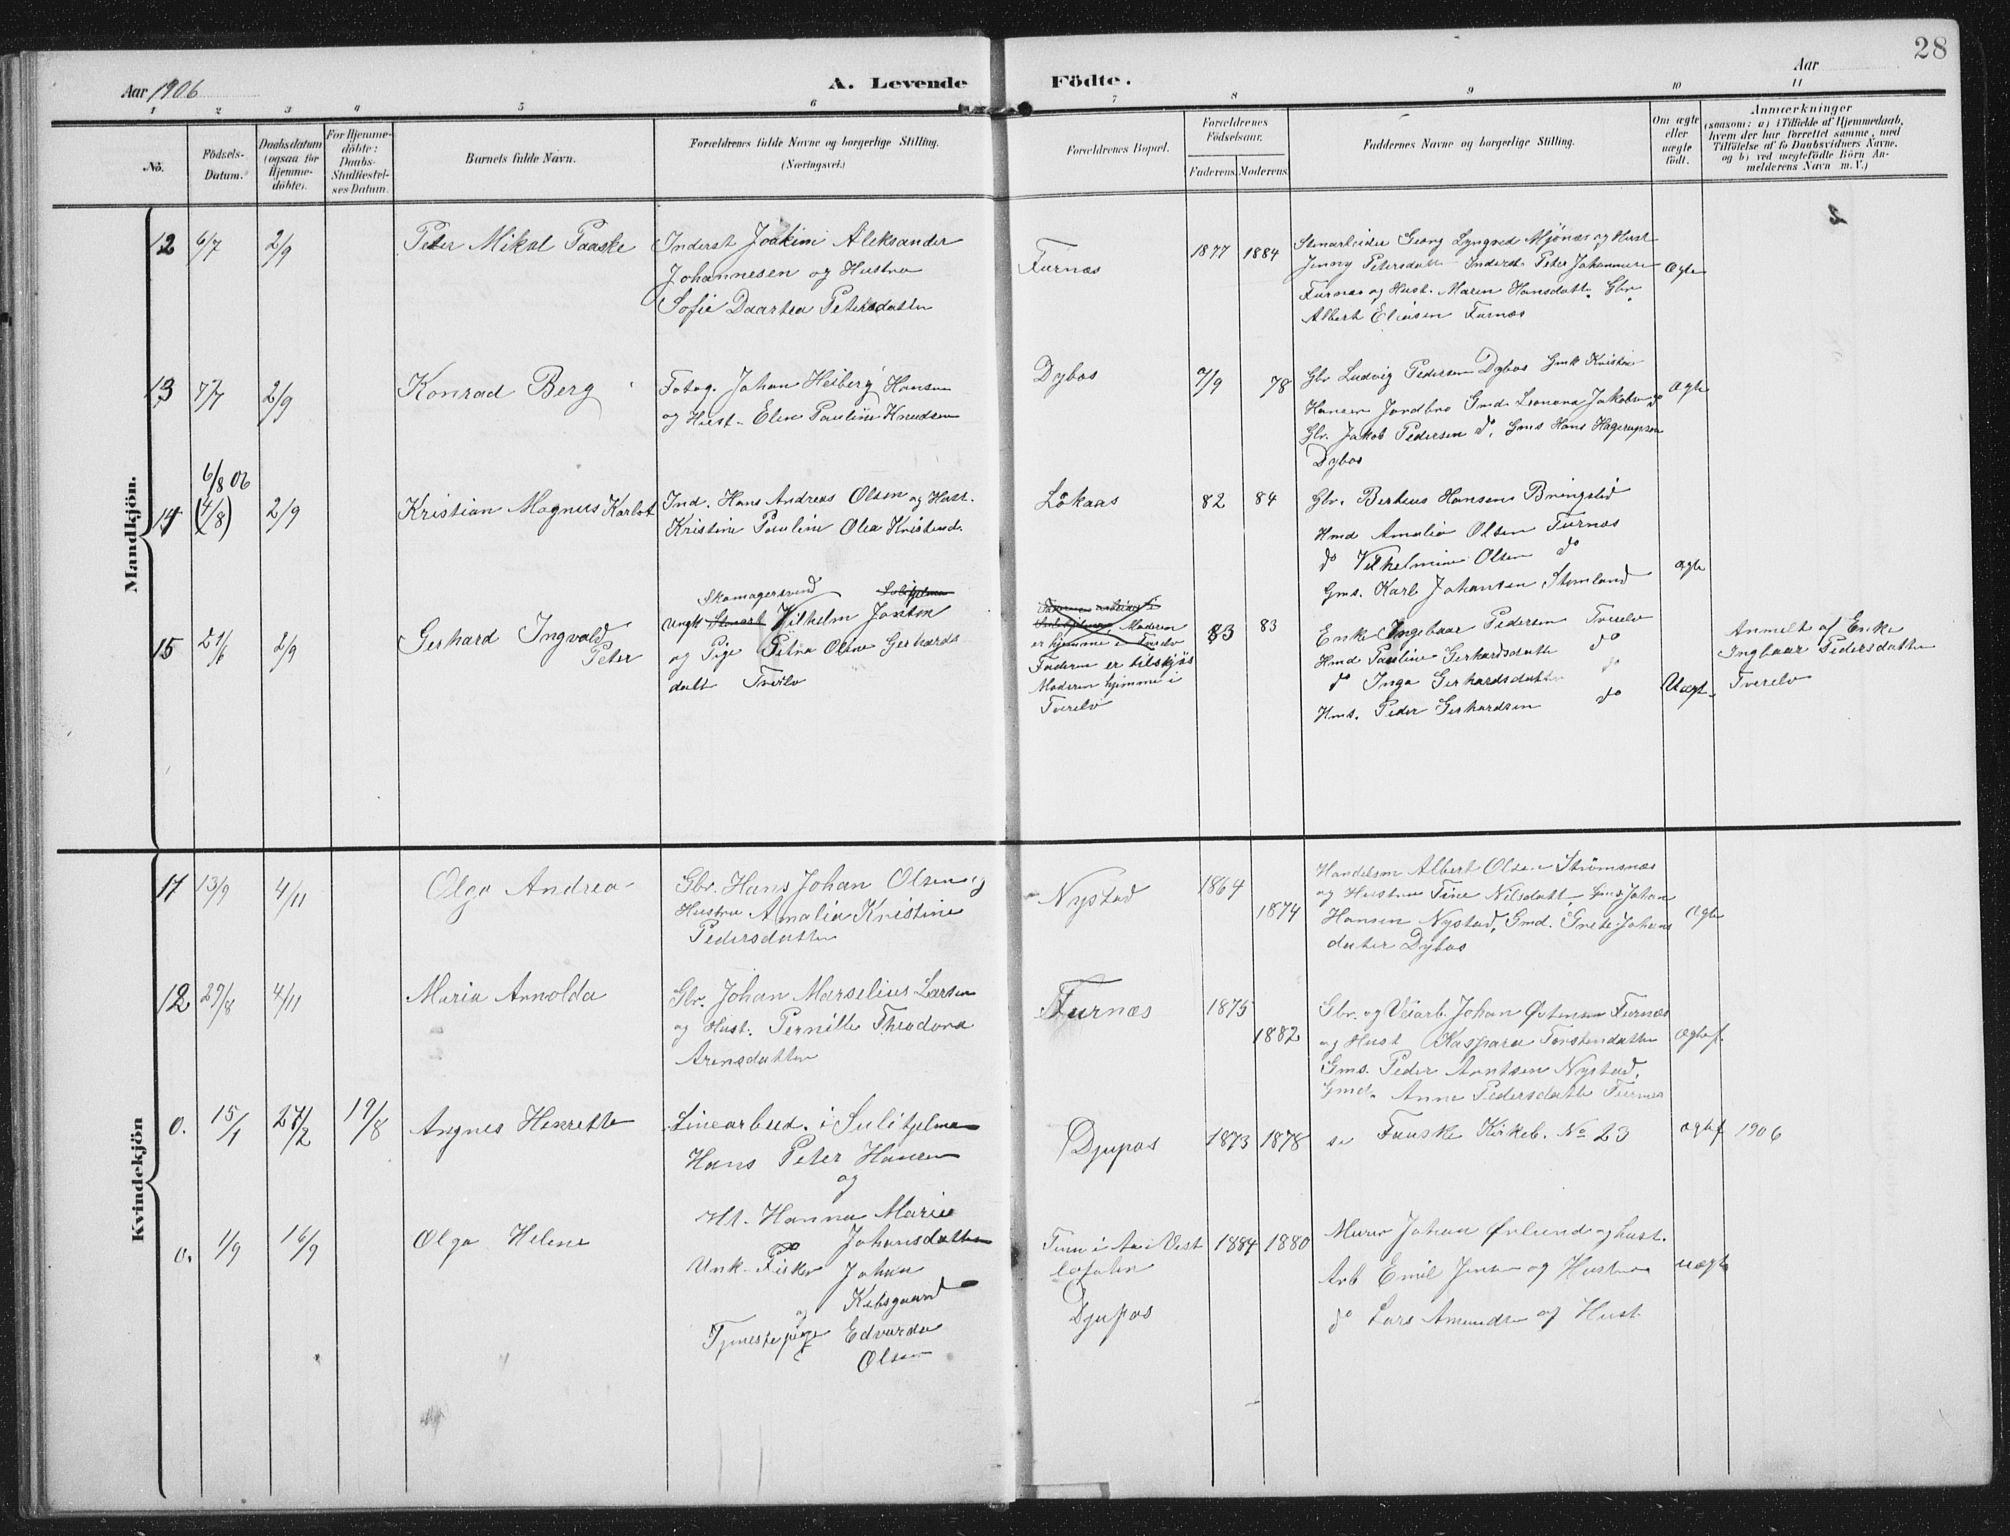 28
Aar 1906
A. Levende Födte.
Aar
1 2 3 4 5 6 7 8 9 10 11
No.
Födsels-
Datum.
Daabsdatum
(ogsaa for
Hjemme-
döbte).
For Hjemme-
döbte:
Daabs-
Stadfæstel-
ses-Datum.
Barnets fulde Navn.
Forældrenes fulde Navne og borgerlige Stilling.
(Næringsvei.)
Forældrenes Bopæl.
Forældrenes
Födselsaar.
Faderens. Moderens.
Faddernes Navne og borgerlige Stilling.
Om ægte
eller
uægte
födt.
Anmærkninger
(saasom: a) i Tilfælde af Hjemmedaab,
hvem der har forrettet samme, med
Tilföielse af to Daabsvidners Navne,
og b) ved uægtefödte Börn An-
melderens Navn m.V.)
Mandkjön.
12 6/7 2/9
Peter Mikal Paaske
Inderst Joakim Aleksander
Johannesen og Hustru
Sofie Daartea Petersdatter
Furnæs
1877 1884
Stenarbeider Georg Lyngved Mjönæs og Hust
Jenny Petersdatt Inderst Peter Johannesen
Furnæs og Hust. Maren Hansdatt. Gbr
Albert Eliasen Furnæs
Ægte
13 7/7 2/9
Konrad Berg
Fotog. Johan Heiberg Hansen
og Hust. Elen Pauline Knudsen
Dybos
7/9 78
Gbr Ludvig Pedersen Dybos Gmk Kristin
Hansen Jordbro Gmd. Leonora Jakobsen do
Gbr. Jakob Pedersen do, Gms Hans Hagerupsen
Dybos
Ægte
6/8 06
14 (4/8) 2/9
Kristian Magnus Karlot
Ind. Hans Andreas Olsen og Hust.
Kristine Pauline Olea Kristensd.
Lökaas
82 84
Gbr. Berteus Hansen Bringslid
Hmd Amalia Olsen Furnæs
do Vilhelmine Olsen do
Gms. Karl Johansen Stemland
ægte
15 21/6 2/9
Gerhard Ingvald
Peter
Skomagersvend
Ungk Vilhelm Jonson
og Pige Petra Oline Gerhards
datt Tverelv
Moderen
er hjemme i Tverelv
Faderen er tilskjös
Moderen hjemme i
Tverelv
83 83
Enke Ingebaar Pedersen Tverelv
Hmd Pauline Gerhardsdatte do
do Inga Gerhardsdatter do
Hms. Peder Gerhardsen do
Uægt.
Anmeldt af Enke
Ingbaar Pedersdatter
Tverelv
Kvindekjön
11 13/9 4/11
Olga Andrea
Gbr. Hans Johan Olsen og
Hustru Amalia Kristine
Pedersdatter
Nystad
1864
1874
Handelsm Albert Olsen Strömsnæs
og Hustru Tine Nilsdatt Gms Johan
Hansen Nystad, Gmd. Grete Johans
datter Dybos
Ægte
12 29/8 4/11
Maria Arnolda
Gbr. Johan Marselius Larsen
og Hust. Pernille Theodora
Arensdatter
Furnæs
1875
1882
Gbr. og Veiarb. Johan Östensen Furnæs
og Hust Kaspara Torstendatte
Gms. Peder Arntsen Nystad,
Gmd. Anne Pedersdatte Furnæs
ægtef
0. 15/1 27/2 19/8
Angnes Henrette
Linearbeid. i Sulitjelma
Hans Peter Hansen
og
Ht. Hanna Marie
Johansdatter
Djupos
1873 1878
se Fauske Kirkeb. No 23
ægtef
1906
0. 1/9 16/9
Olga Helene
Unk. Fisker Johan
Kibsgaard
og
Tjenestepige Edvarda
Olsen
Vest
lofoten
Djupos
1884 1880
Murer Johan Örlund og hust.
Arb Emil Jensen og Hustru
do Lars Amundsen og Hust
uægte